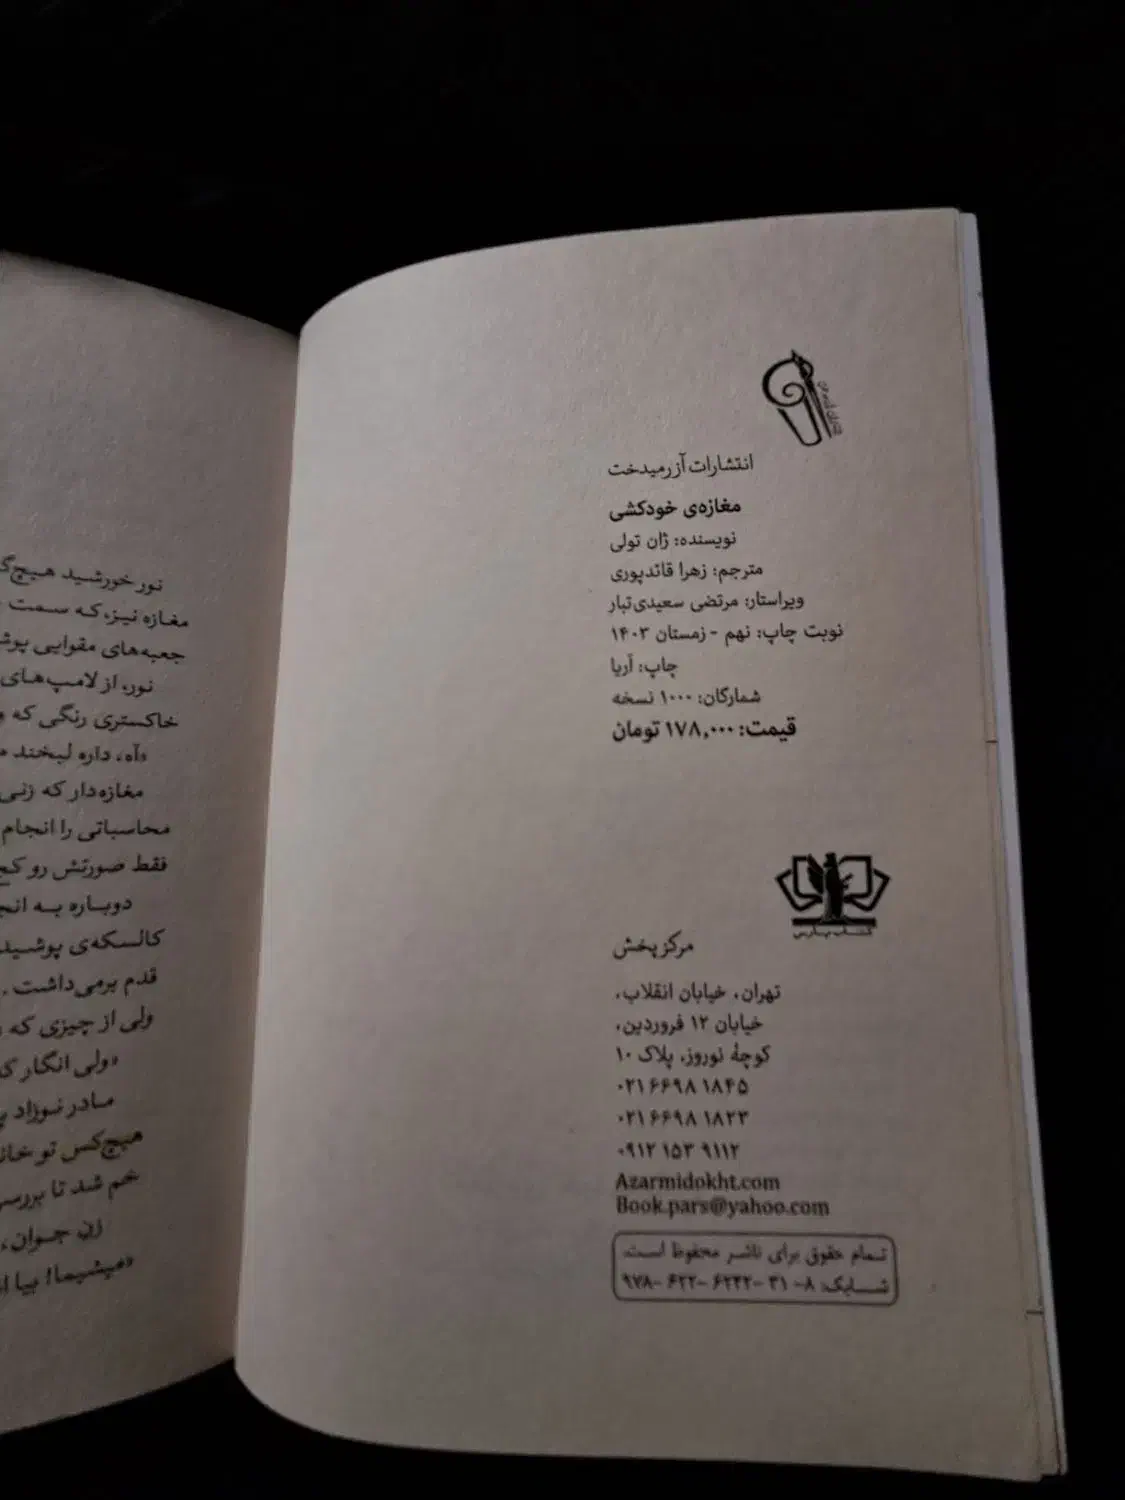 انتشارات آزرمیدخت
مغازه‌ی خودکشی
نویسنده: ژان تولی
مترجم: زهرا قائدپوری
ویراستار: مرتضی سعیدی‌تبار
نوبت چاپ: نهم - زمستان ۱۴۰۳
چاپ: آریا
شمارگان: ۱۰۰۰ نسخه
قیمت: ۱۷۸,۰۰۰ تومان
کتاب پارس
مرکز پخش
تهران، خیابان انقلاب،
خیابان ۱۲ فروردین،
کوچهٔ نوروز، پلاک ۱۰
۰۲۱ ۶۶۹۸ ۱۸۴۵
۰۲۱ ۶۶۹۸ ۱۸۲۳
۰۹۱۲ ۱۵۳ ۹۱۱۲
Azarmidokht.com
Book.pars@yahoo.com
تمام حقوق برای ناشر محفوظ است.
شابک: ۸-۳۱-۶۲۴۲-۶۲۲-۹۷۸
نور خورشید
مغازه نیز، که سمت
جعبه‌های مقوایی
نور، از لامپ‌های
خاکستری رنگی که
«آه، داره لبخند
مغازه‌دار که زنی
محاسباتی را انجام
فقط صورتش رو کج
دوباره به
کالسکه‌ی
قدم برمی‌داشت.
ولی از چیزی که
«ولی انگار
مادر نوزاد
هیچ‌کس تو
خم شد تا
زن جوان،
«میشیما! بیا